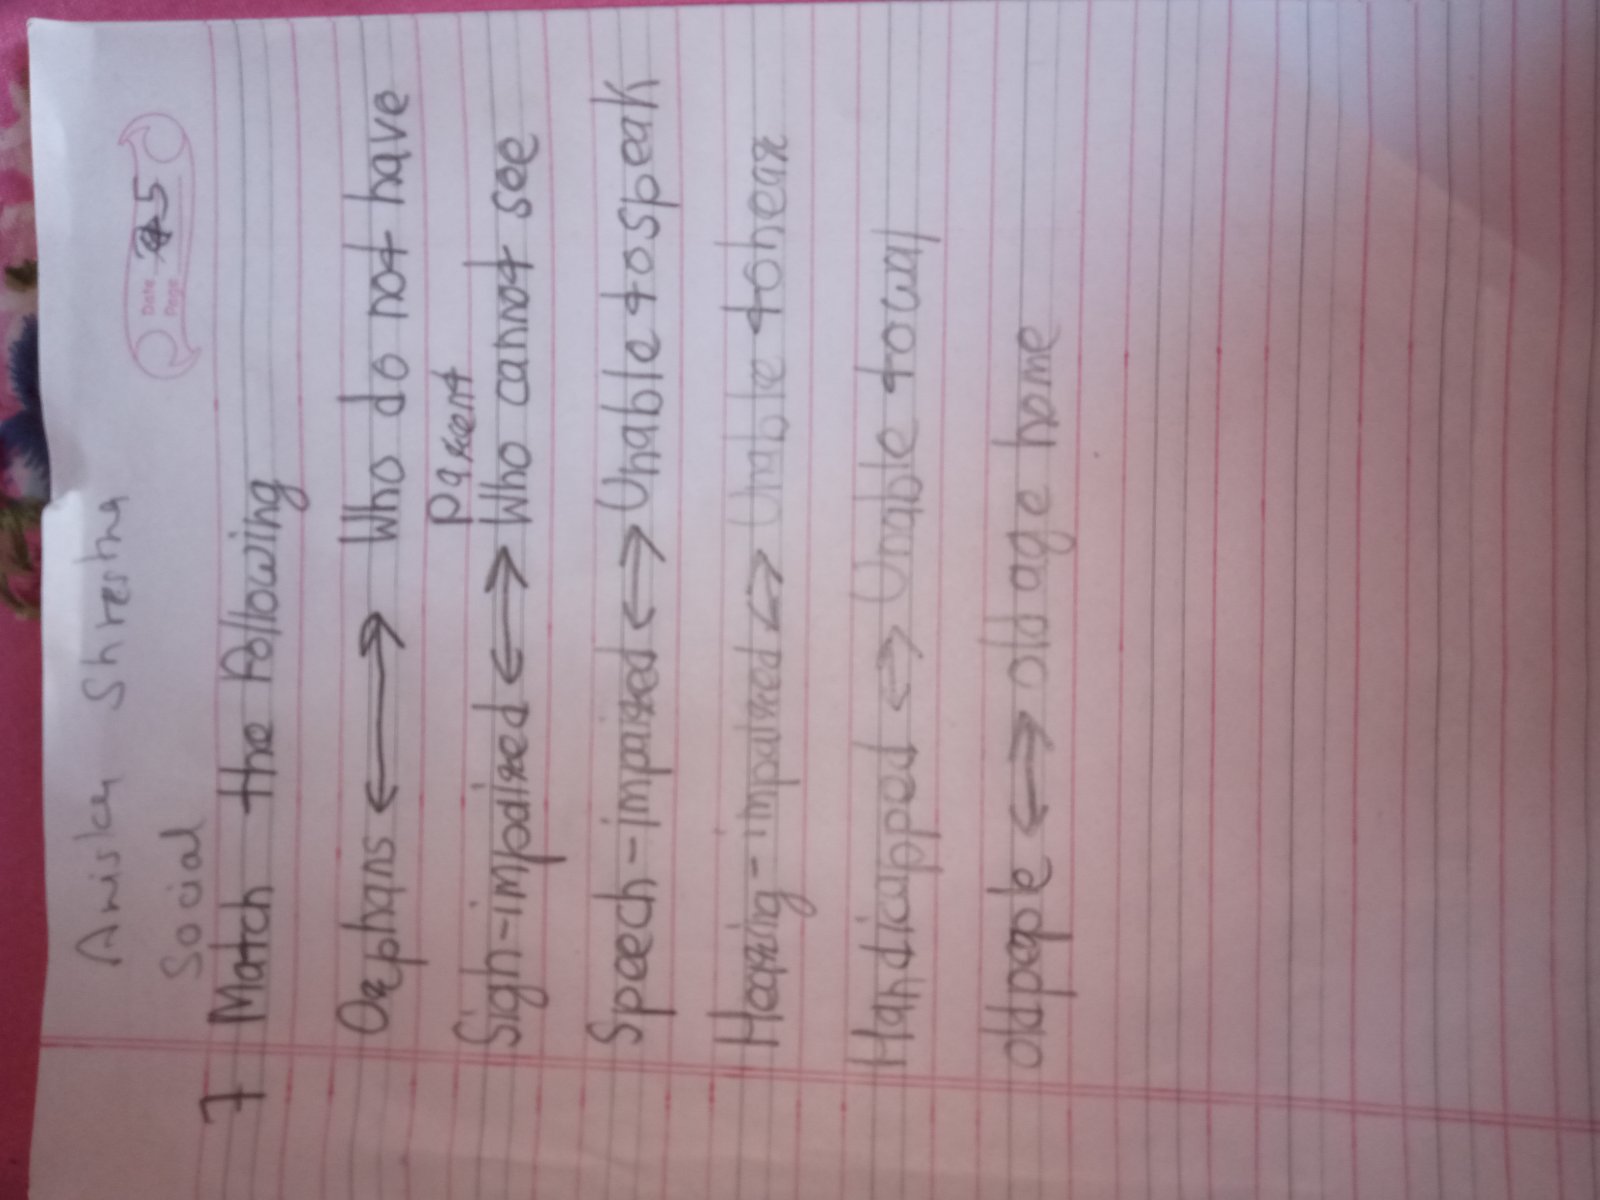 Date
Page 5
Shrestha
Social
7 Match the following
Orphans ⟷ Who do not have
Parent
Sigh-impaired ⟷ Who cannot see
Speech-impaired ⟷ Unable to speak
Hearing-impaired ⟷ Unable to hear
Handicapped ⟷ Unable to
old people ⟷ old age home